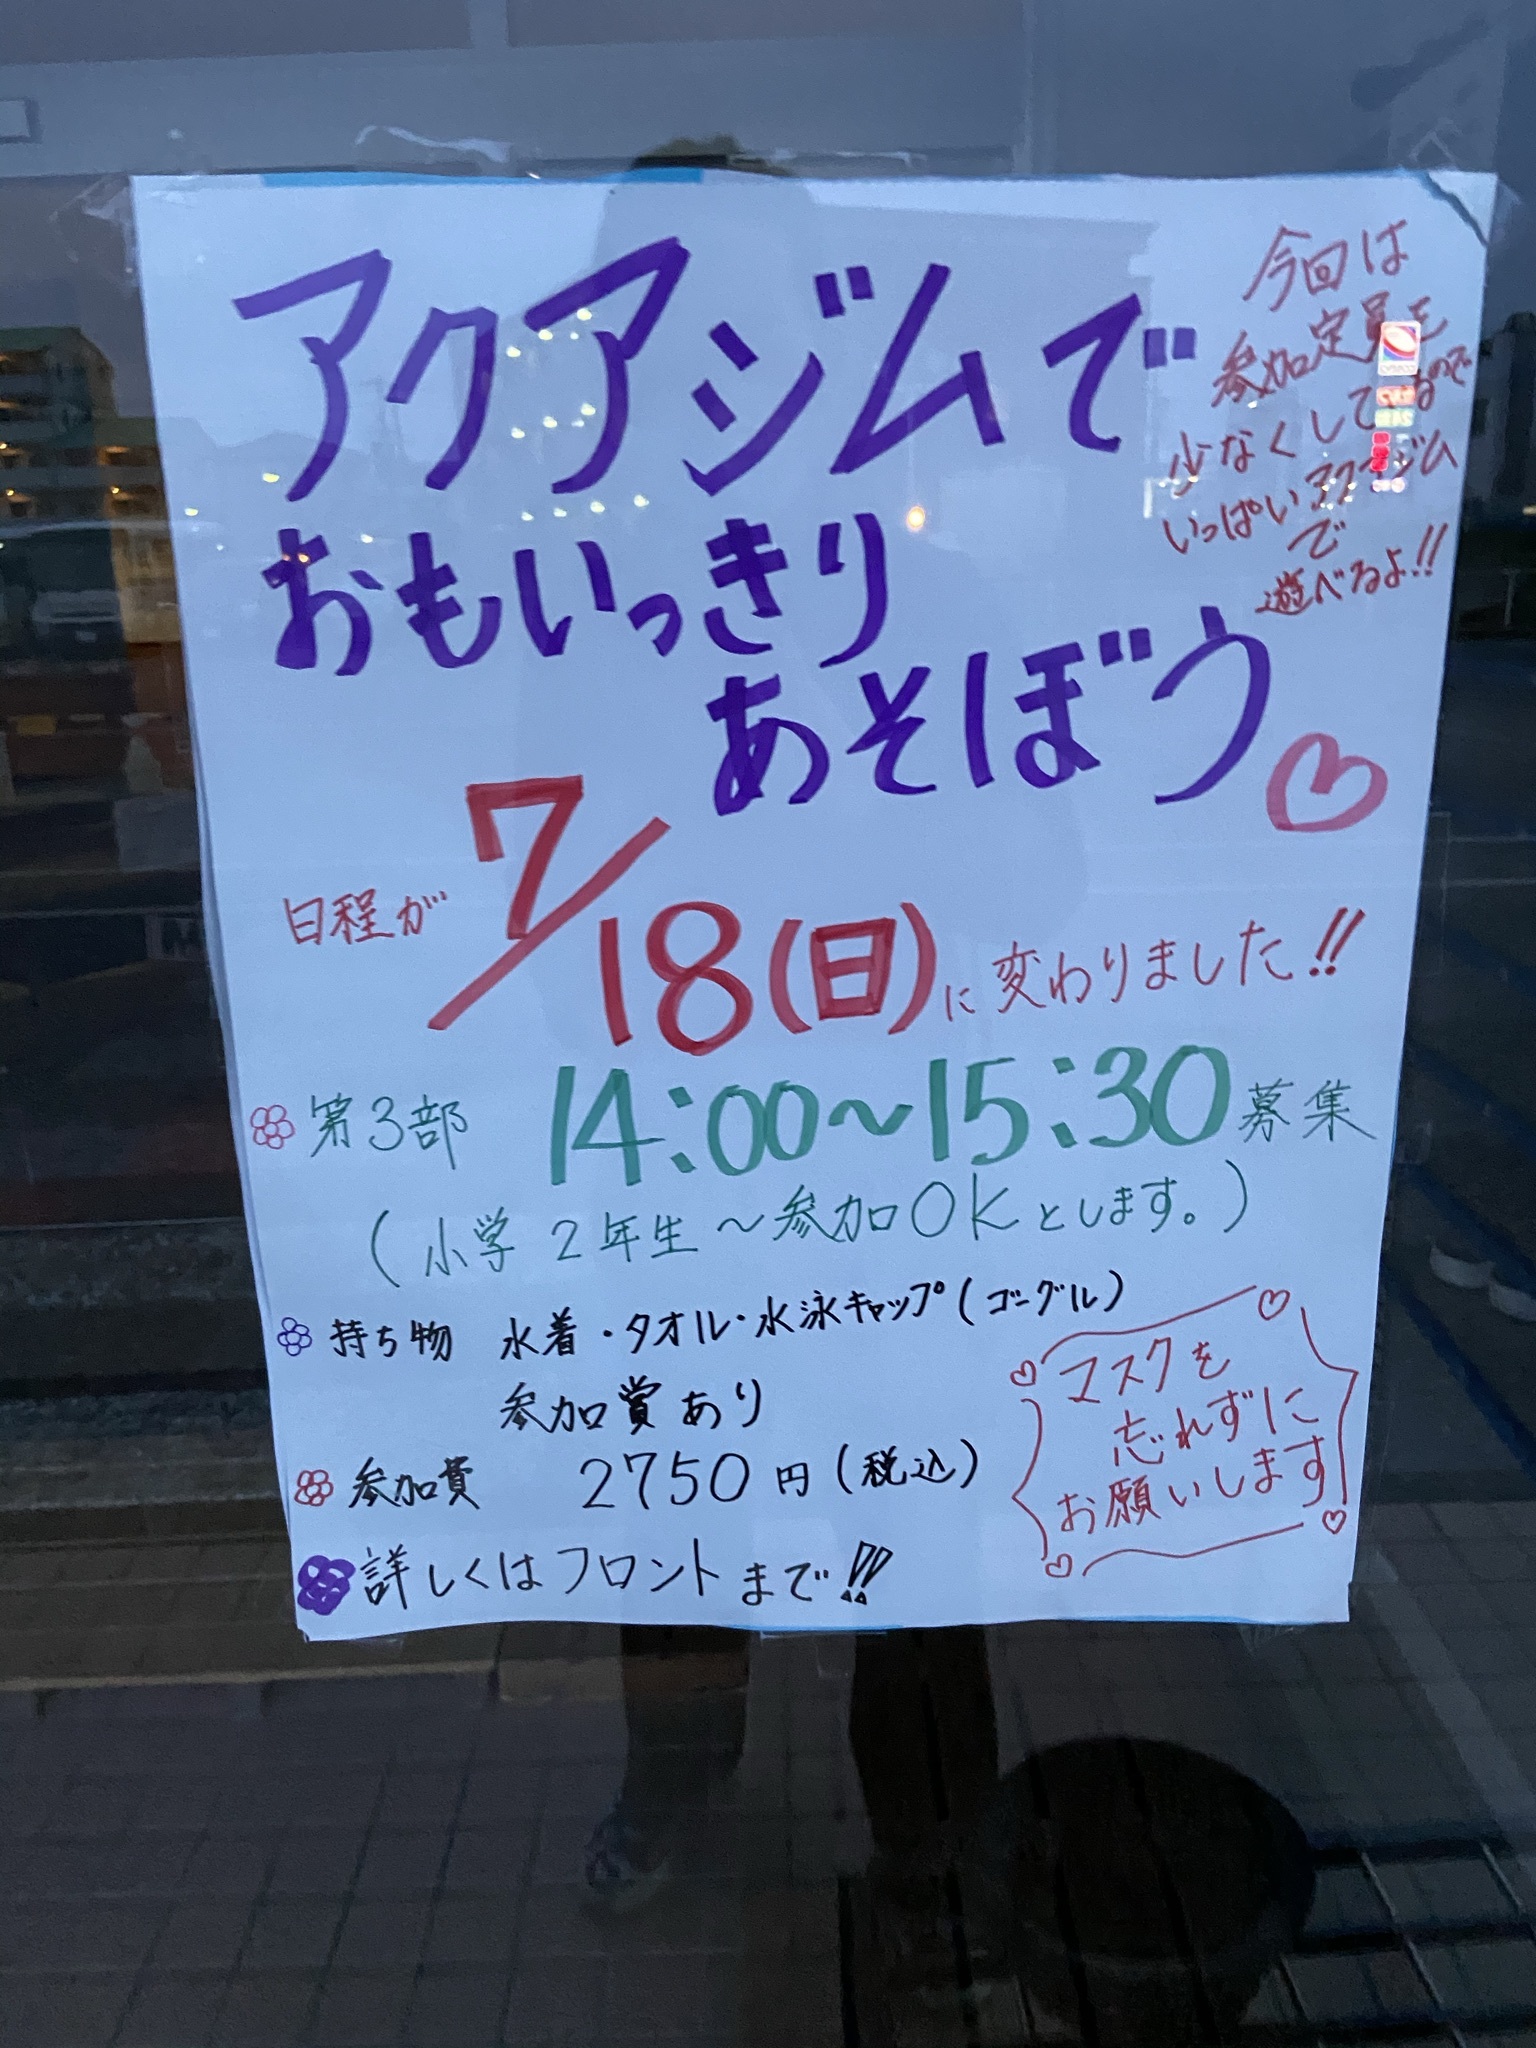 アクアジムで
おもいっきり
あそぼう
今回は
参加定員を
少なくしているので
いっぱいアクアジム
で
遊べるよ!!
日程が 7/18(日)に変わりました!!
第3部 14:00~15:30 募集
(小学2年生~参加OKとします。)
持ち物 水着・タオル・水泳キャップ(ゴーグル)
参加賞あり
参加費 2750円(税込)
詳しくはフロントまで!!
マスクを
忘れずに
お願いします